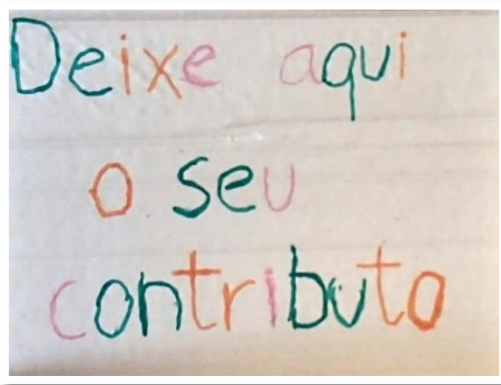 Deixe aqui
o seu
contributo